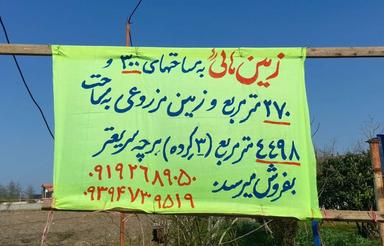 زمین هائی به مساحتهای ۳۰۰ و
۲۷۰ متر مربع و زمین مزروعی به مساحت
۴۴۹۸ متر مربع (۳ کرده) هر چه سریعتر
بفروش میرسد:
۰۹۱۹۲۶۸۹۰۵۰
۰۹۳۹۴۷۳۹۵۱۹